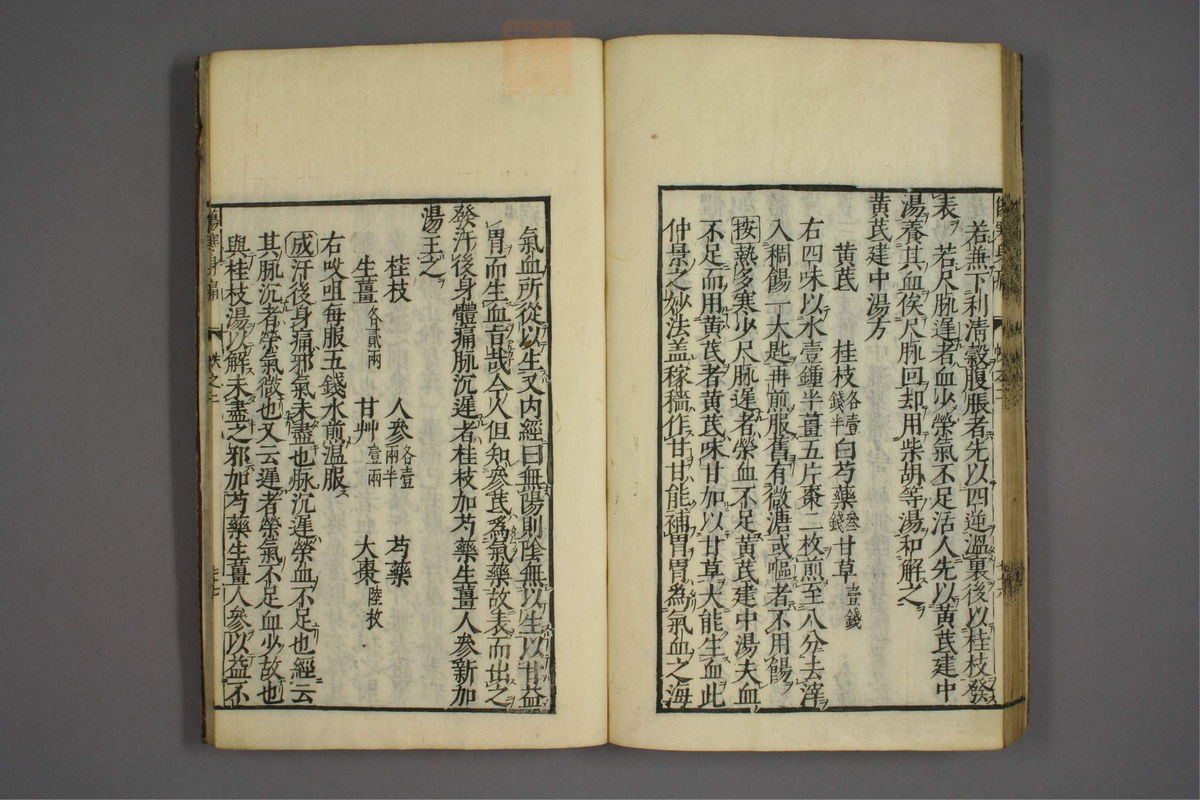 若無下利清穀腹脹者先以四逆溫裏後以桂枝發
表若尺脉遲者血少榮氣不足活人先以黃芪建中
湯養其血俟尺脉回却用柴胡等湯和解之
黃芪建中湯方
黃芪 桂枝各壹錢半白芍藥叄錢甘草壹錢
右四味以水壹鍾半薑五片棗二枚煎至八分去滓
入稠餳一大匙再煎服舊有微溏或嘔者不用餳
按熱多寒少尺脉遲者榮血不足黃芪建中湯夫血
不足而用黃芪者黃芪味甘加以甘草大能生血此
仲景之妙法盖稼穡作甘甘能補胃胃為氣血之海
氣血所從以生又内經曰無陽則陰無以生以甘益
胃而生血旨哉今人但知參芪爲氣藥故表而出之
發汗後身體痛脉沉遲者桂枝加芍藥生薑人參新加
湯主之
桂枝 人參各壹兩半 芍藥
生薑各貳兩 甘艸壹兩 大棗陸枚
右㕮咀每服五錢水煎温服
成汗後身痛邪氣未盡也脉沉遲榮血不足也經云
其脉沉者榮氣微也又云遲者榮氣不足血少故也
與桂枝湯以解未盡之邪加芍藥生薑人參以益不
傷寒身痛 帙之二